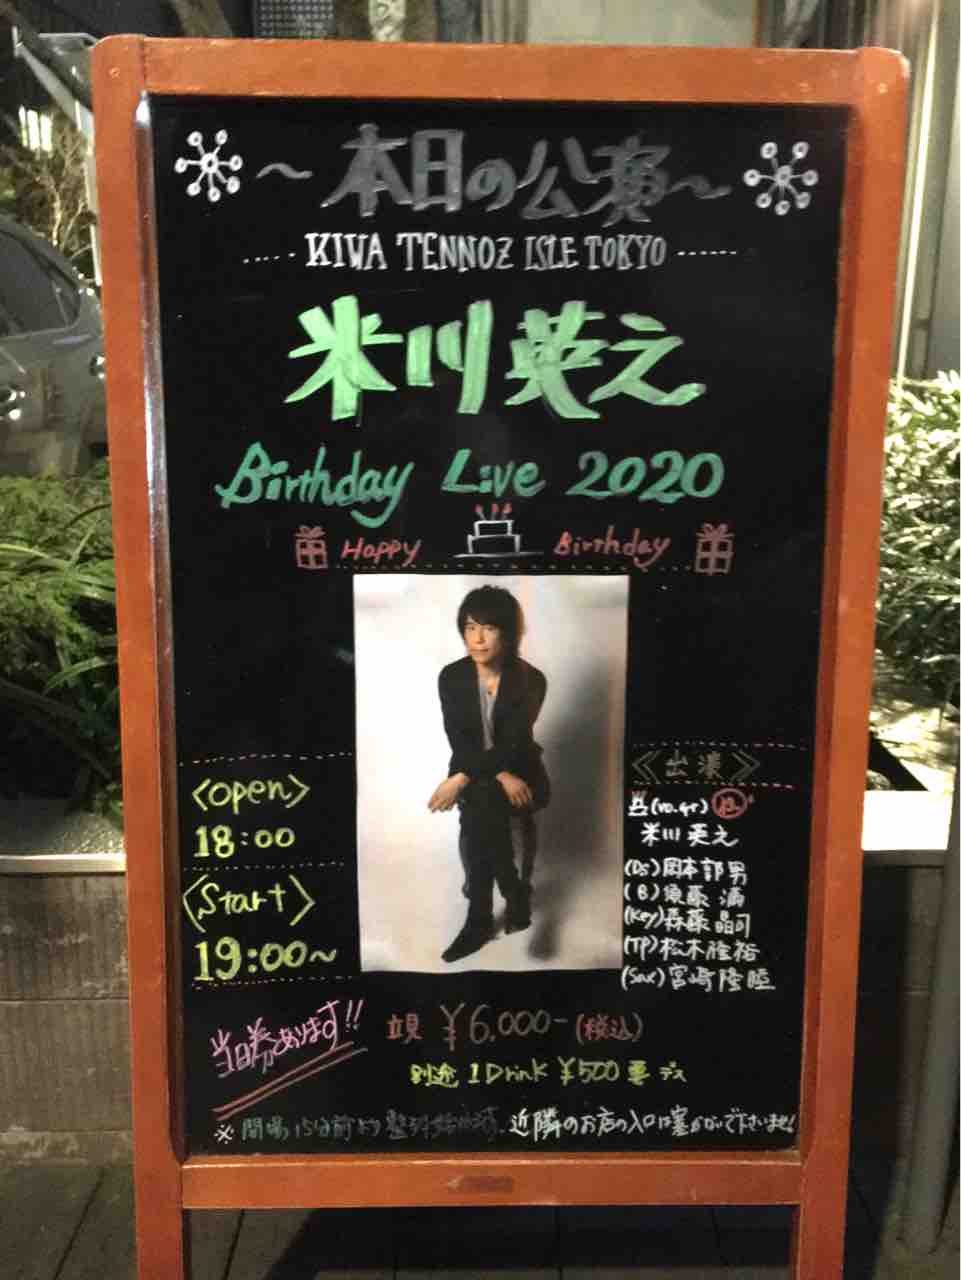 ～本日の公演～
KIWA TENNOZ ISLE TOKYO
米川英之
Birthday Live 2020
Happy Birthday
<open>
18:00
<Start>
19:00～
《出演》
(vo.gt)
米川英之
(Ds)岡本郭男
(B)須藤満
(Key)森藤晶司
(TP)松木隆裕
(Sax)宮崎隆睦
当日券あります!!
¥6,000-(税込)
別途 1Drink ¥500要デス
※開場15分前より整列 近隣のお店の入口は塞がないで下さいませ!